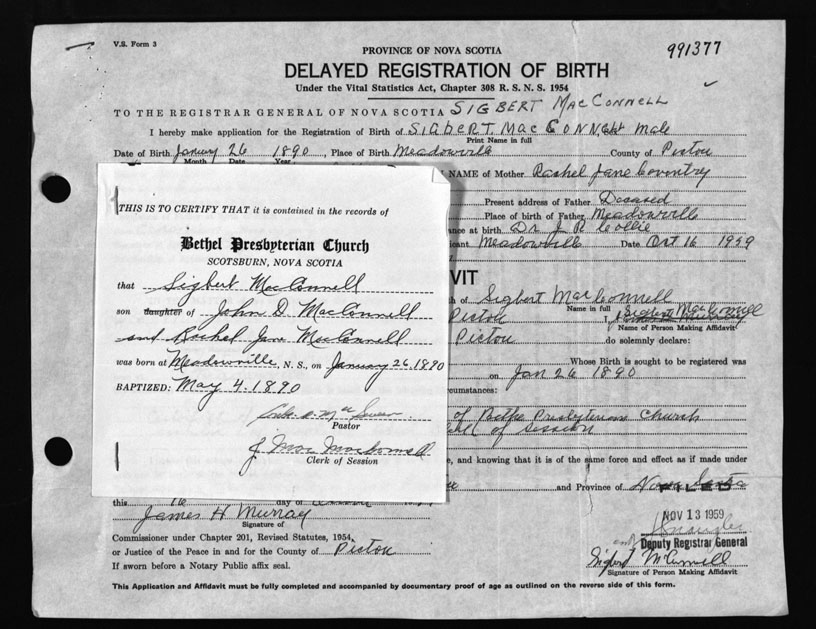 V.S. Form 3
PROVINCE OF NOVA SCOTIA
991377
DELAYED REGISTRATION OF BIRTH
Under the Vital Statistics Act, Chapter 308 R. S. N. S. 1954
TO THE REGISTRAR GENERAL OF NOVA SCOTIA SIGBERT MACCONNELL
I hereby make application for the Registration of Birth of SIGBERT MAC CONNELL Male
Print Name in full
Date of Birth January 26 1890, Place of Birth Meadowville County of Pictou
Month Date Year
NAME of Mother Rachel Jane Coventry
Present address of Father Deceased
Place of birth of Father Meadowville
ance at birth Dr J R Collie
icant Meadowville Date Oct 16 1959
THIS IS TO CERTIFY THAT it is contained in the records of
Bethel Presbyterian Church
SCOTSBURN, NOVA SCOTIA
that Sigbert MacConnell
son daughter of John D. MacConnell
and Rachel Jane MacConnell
was born at Meadowville, N. S., on January 26 1890
BAPTIZED: May 4. 1890
Pastor
Clerk of Session
VIT
h of Sigbert MacConnell
Name in full
Pictou I, Sigbert MacConnell
Name of Person Making Affidavit
Pictou do solemnly declare:
Whose Birth is sought to be registered was
on Jan 26 1890
cumstances:
of Bethel Presbyterian Church
of Session
e, and knowing that it is of the same force and effect as if made under
and Province of Nova Scotia
FILED
this 16 day of
NOV 13 1959
James H Murray
Signature of
Deputy Registrar General
Commissioner under Chapter 201, Revised Statutes, 1954,
or Justice of the Peace in and for the County of Pictou
Sigbert McConnell
If sworn before a Notary Public affix seal.
Signature of Person Making Affidavit
This Application and Affidavit must be fully completed and accompanied by documentary proof of age as outlined on the reverse side of this form.